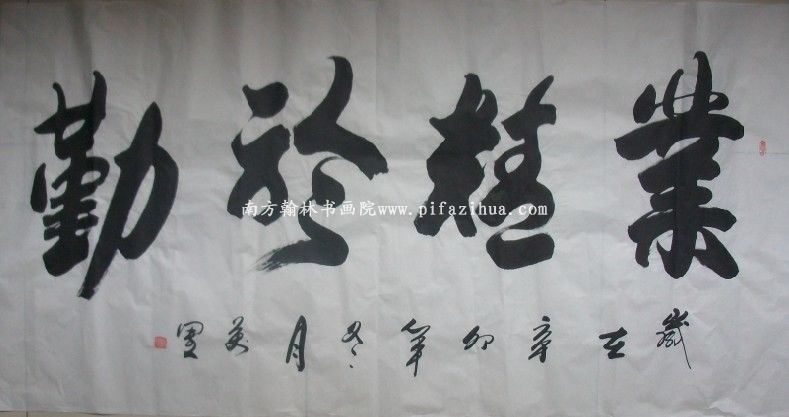 業精於勤
南方翰林书画院www.pifazihua.com
歲在辛卯年冬月